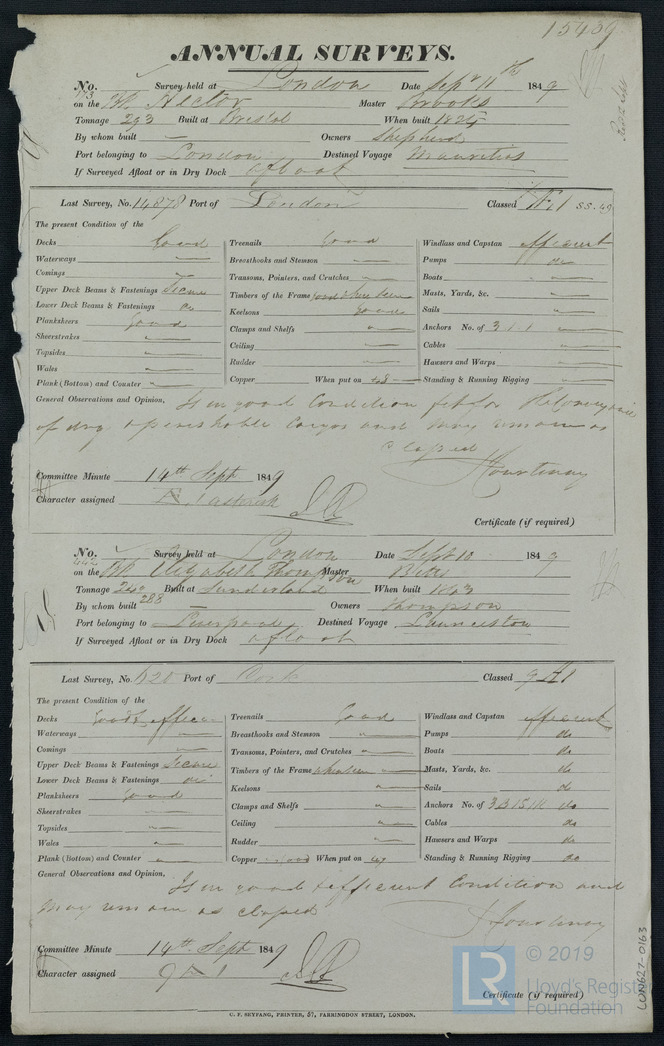 15439
ANNUAL SURVEYS.
No. 173 Survey held at London Date Sept 11th 1849
on the Bk Hector Master Brooks
Tonnage 293 Built at Bristol When built 1824
By whom built — Owners Shepherd
Port belonging to London Destined Voyage Mauritius
If Surveyed Afloat or in Dry Dock afloat
Last Survey, No. 14878 Port of London Classed Æ 1 SS. 49
The present Condition of the
Decks Good Treenails Good Windlass and Capstan efficient
Waterways " Breesthooks and Stemson " Pumps do
Comings " Transoms, Pointers, and Crutches " Boats "
Upper Deck Beams & Fastenings Secure Timbers of the Frame good where seen Masts, Yards, &c. "
Lower Deck Beams & Fastenings do Keelsons good Sails "
Planksheers Good Clamps and Shelfs " Anchors No. of 3. 1. 1 "
Sheerstrakes " Ceiling " Cables "
Topsides " Rudder " Hawsers and Warps "
Wales " Copper When put on 48 Standing & Running Rigging "
Plank (Bottom) and Counter "
General Observations and Opinion, Is in good Condition fit for the Conveyance
of dry & perishable Cargos and may remain as
classed
J Courtenay
Committee Minute 14th Sept 1849
Character assigned Æ 1 asterisk
Certificate (if required)
No. 442 Survey held at London Date Sept 10 1849
on the Bk Elizabeth Thompson Master
Tonnage 240 288 Built at Sunderland When built 1843
By whom built — Owners Thompson
Port belonging to Liverpool Destined Voyage Launceston
If Surveyed Afloat or in Dry Dock afloat
Last Survey, No. 620 Port of Cork Classed 9 A 1
The present Condition of the
Decks Good & efficient Treenails Good Windlass and Capstan efficient
Waterways " Breasthooks and Stemson " Pumps do
Comings " Transoms, Pointers, and Crutches " Boats do
Upper Deck Beams & Fastenings Secure Timbers of the Frame where seen Masts, Yards, &c. do
Lower Deck Beams & Fastenings do Keelsons " Sails do
Planksheers Good Clamps and Shelfs " Anchors No. of 3B 1S 1K do
Sheerstrakes " Ceiling " Cables do
Topsides " Rudder " Hawsers and Warps do
Wales " Copper good When put on 49 Standing & Running Rigging do
Plank (Bottom) and Counter "
General Observations and Opinion, Is in good & efficient Condition and
may remain as classed
J Courtenay
Committee Minute 14th Sept 1849
Character assigned 9 A 1
Certificate (if required)
C. F. SEYFANG, PRINTER, 57, FARRINGDON STREET, LONDON.
LON627-0163
© 2019
LR
Lloyd's Register
Foundation